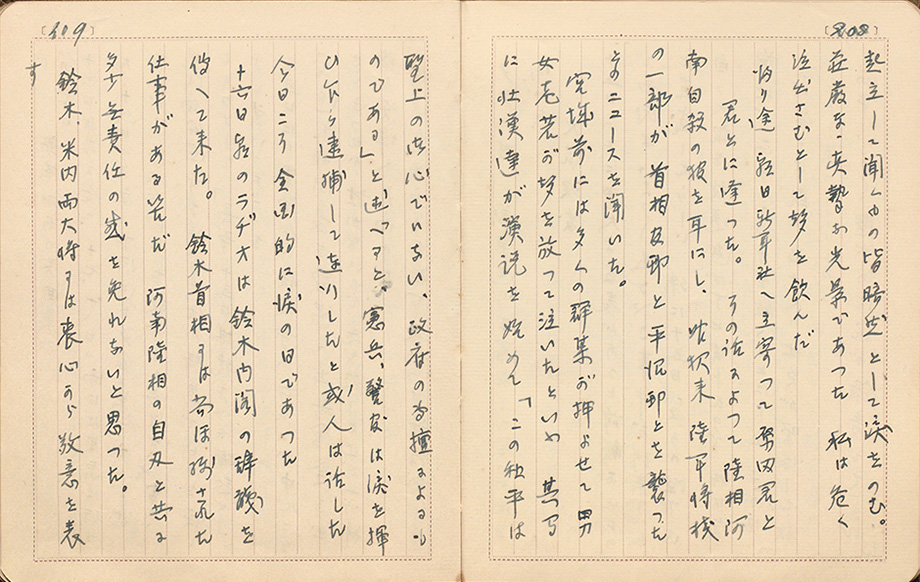 208
起立して聞くもの皆暗然として涙をのむ。
荘厳な 光景であつた 私は危く
泣出さむとして声を飲んだ
帰り途 朝日新聞社へ立寄つて 君と
君とに逢つた。その話によつて陸相阿
南自殺の報を耳にし、昨夜来陸軍将校
の一部が首相官邸と平沼邸とを襲つた
そのニュースを聞いた。
宮城前には多くの群集が押よせて男
女老若が声を放つて泣いたといふ 其内
に壮漢達が演説を始めて「この和平は
209
聖上の御心でいない、政府の専擅によるも
のである」と述べると、憲兵、警官は涙を揮
ひ乍ら逮捕して連行したと或人は話した
今日こそ全国的に涙の日であつた
十六日朝のラヂオは鈴木内閣の辞職を
伝へて来た。鈴木首相には尚ほ残された
仕事がある筈だ 阿南陸相の自刃と共に
多少無責任の感を免れないと思つた。
鈴木、米内両大将には衷心から敬意を表
す